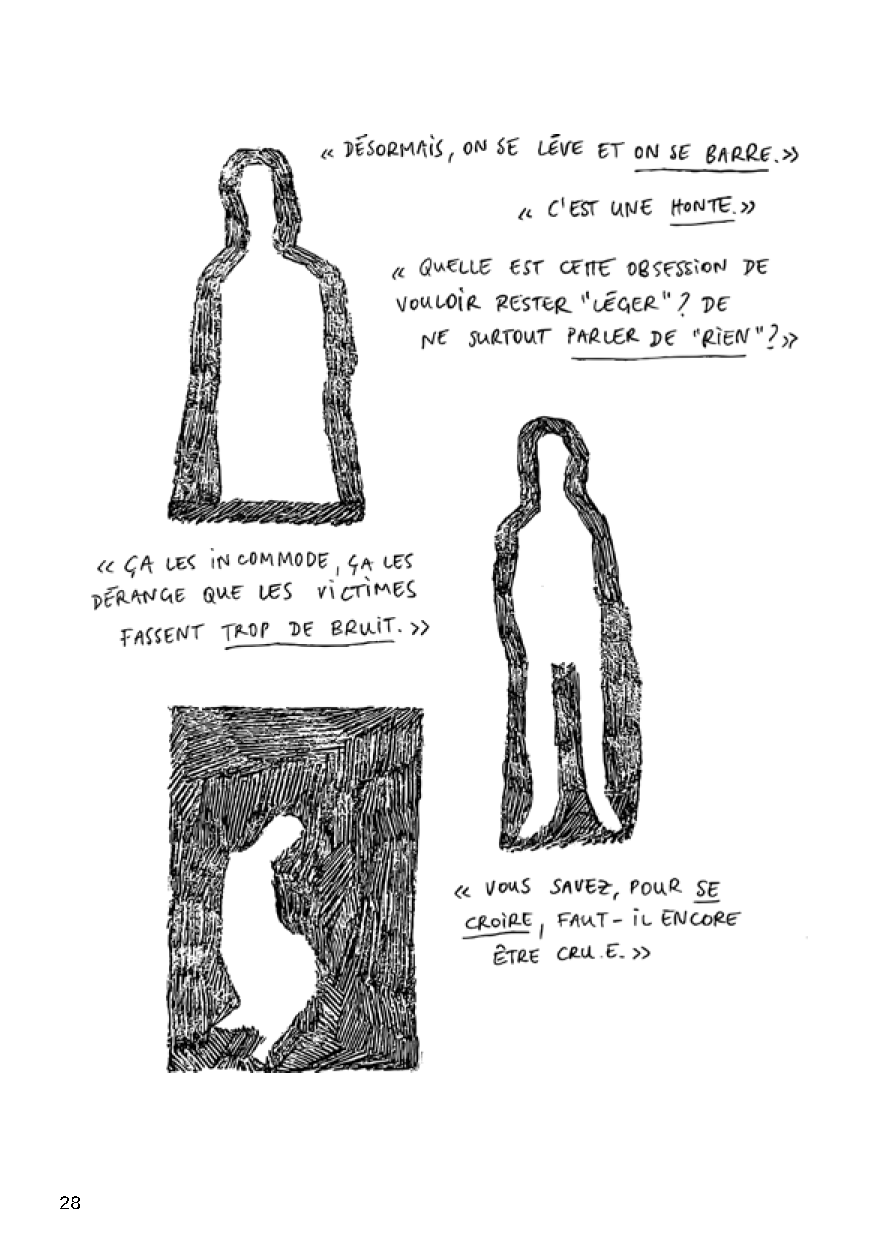 « DÉSORMAIS, ON SE LÈVE ET ON SE BARRE. »
« C'EST UNE HONTE. »
« QUELLE EST CETTE OBSESSION DE
VOULOIR RESTER "LÉGER" ? DE
NE SURTOUT PARLER DE "RIEN" ? »
« ÇA LES INCOMMODE, ÇA LES
DÉRANGE QUE LES VICTIMES
FASSENT TROP DE BRUIT. »
« VOUS SAVEZ, POUR SE
CROIRE, FAUT-IL ENCORE
ÊTRE CRU.E. »
28